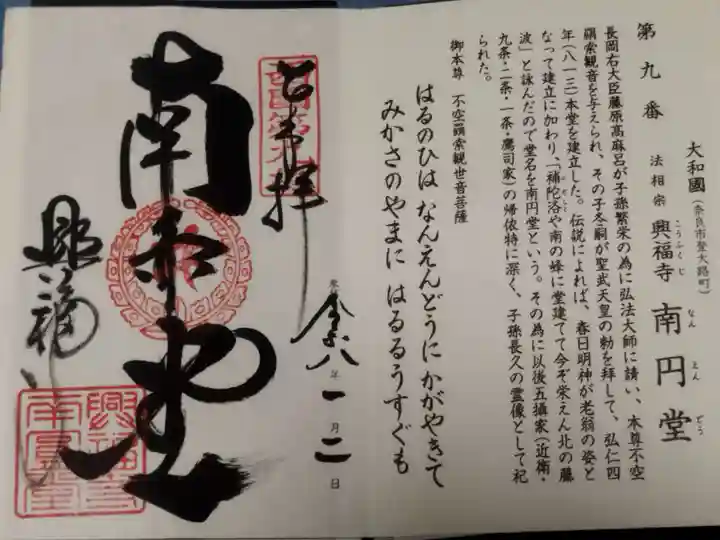 第九番
大和國（奈良市登大路町）
法相宗 興福寺 南円堂
こうふくじ なんえんどう
長岡右大臣藤原高麻呂が子孫繁栄の為に弘法大師に請い、本尊不空
羂索観音を与えられ、その子冬嗣が聖武天皇の勅を拝して、弘仁四
年（八一三）本堂を建立した。伝説によれば、春日明神が老翁の姿と
なって建立に加わり、「補陀洛や南の蜂に堂建てて今ぞ栄えん北の藤
波」と詠んだので堂名を南円堂という。その為に以後五攝家（近衛・
九条・二条・一条・鷹司家）の帰依特に深く、子孫長久の霊像として祀
られた。
御本尊 不空羂索観世音菩薩
はるのひは なんえんどうに かがやきて
みかさのやまに はるるうすぐも
西国第九番
奉拝
令和八年一月二日
南円堂
興福寺
興福寺
南円堂